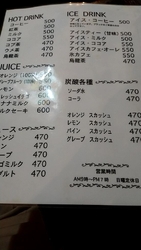 HOT DRINK
コーヒー 500
紅茶 500
ミルク 500
ココア 500
烏龍茶
JUICE
オレンジ
470
レモン
バナナミルク 600
ミルクセーキ 600
ース
470
470
470
グルト 470
ICE DRINK
アイス・コーヒー 500
アイスティー(甘味) 500
アイス・ミルク 500
アイス・ココア 550
アイスカフェ・オーレ 550
氷カフェ
烏龍茶 500
炭酸各種
ソーダ水 470
コーラ 470
オレンジ スカッシュ 470
レモン スカッシュ 470
パイン スカッシュ 470
グレープ スカッシュ 470
営業時間
AM8時～PM7時 日曜定休日